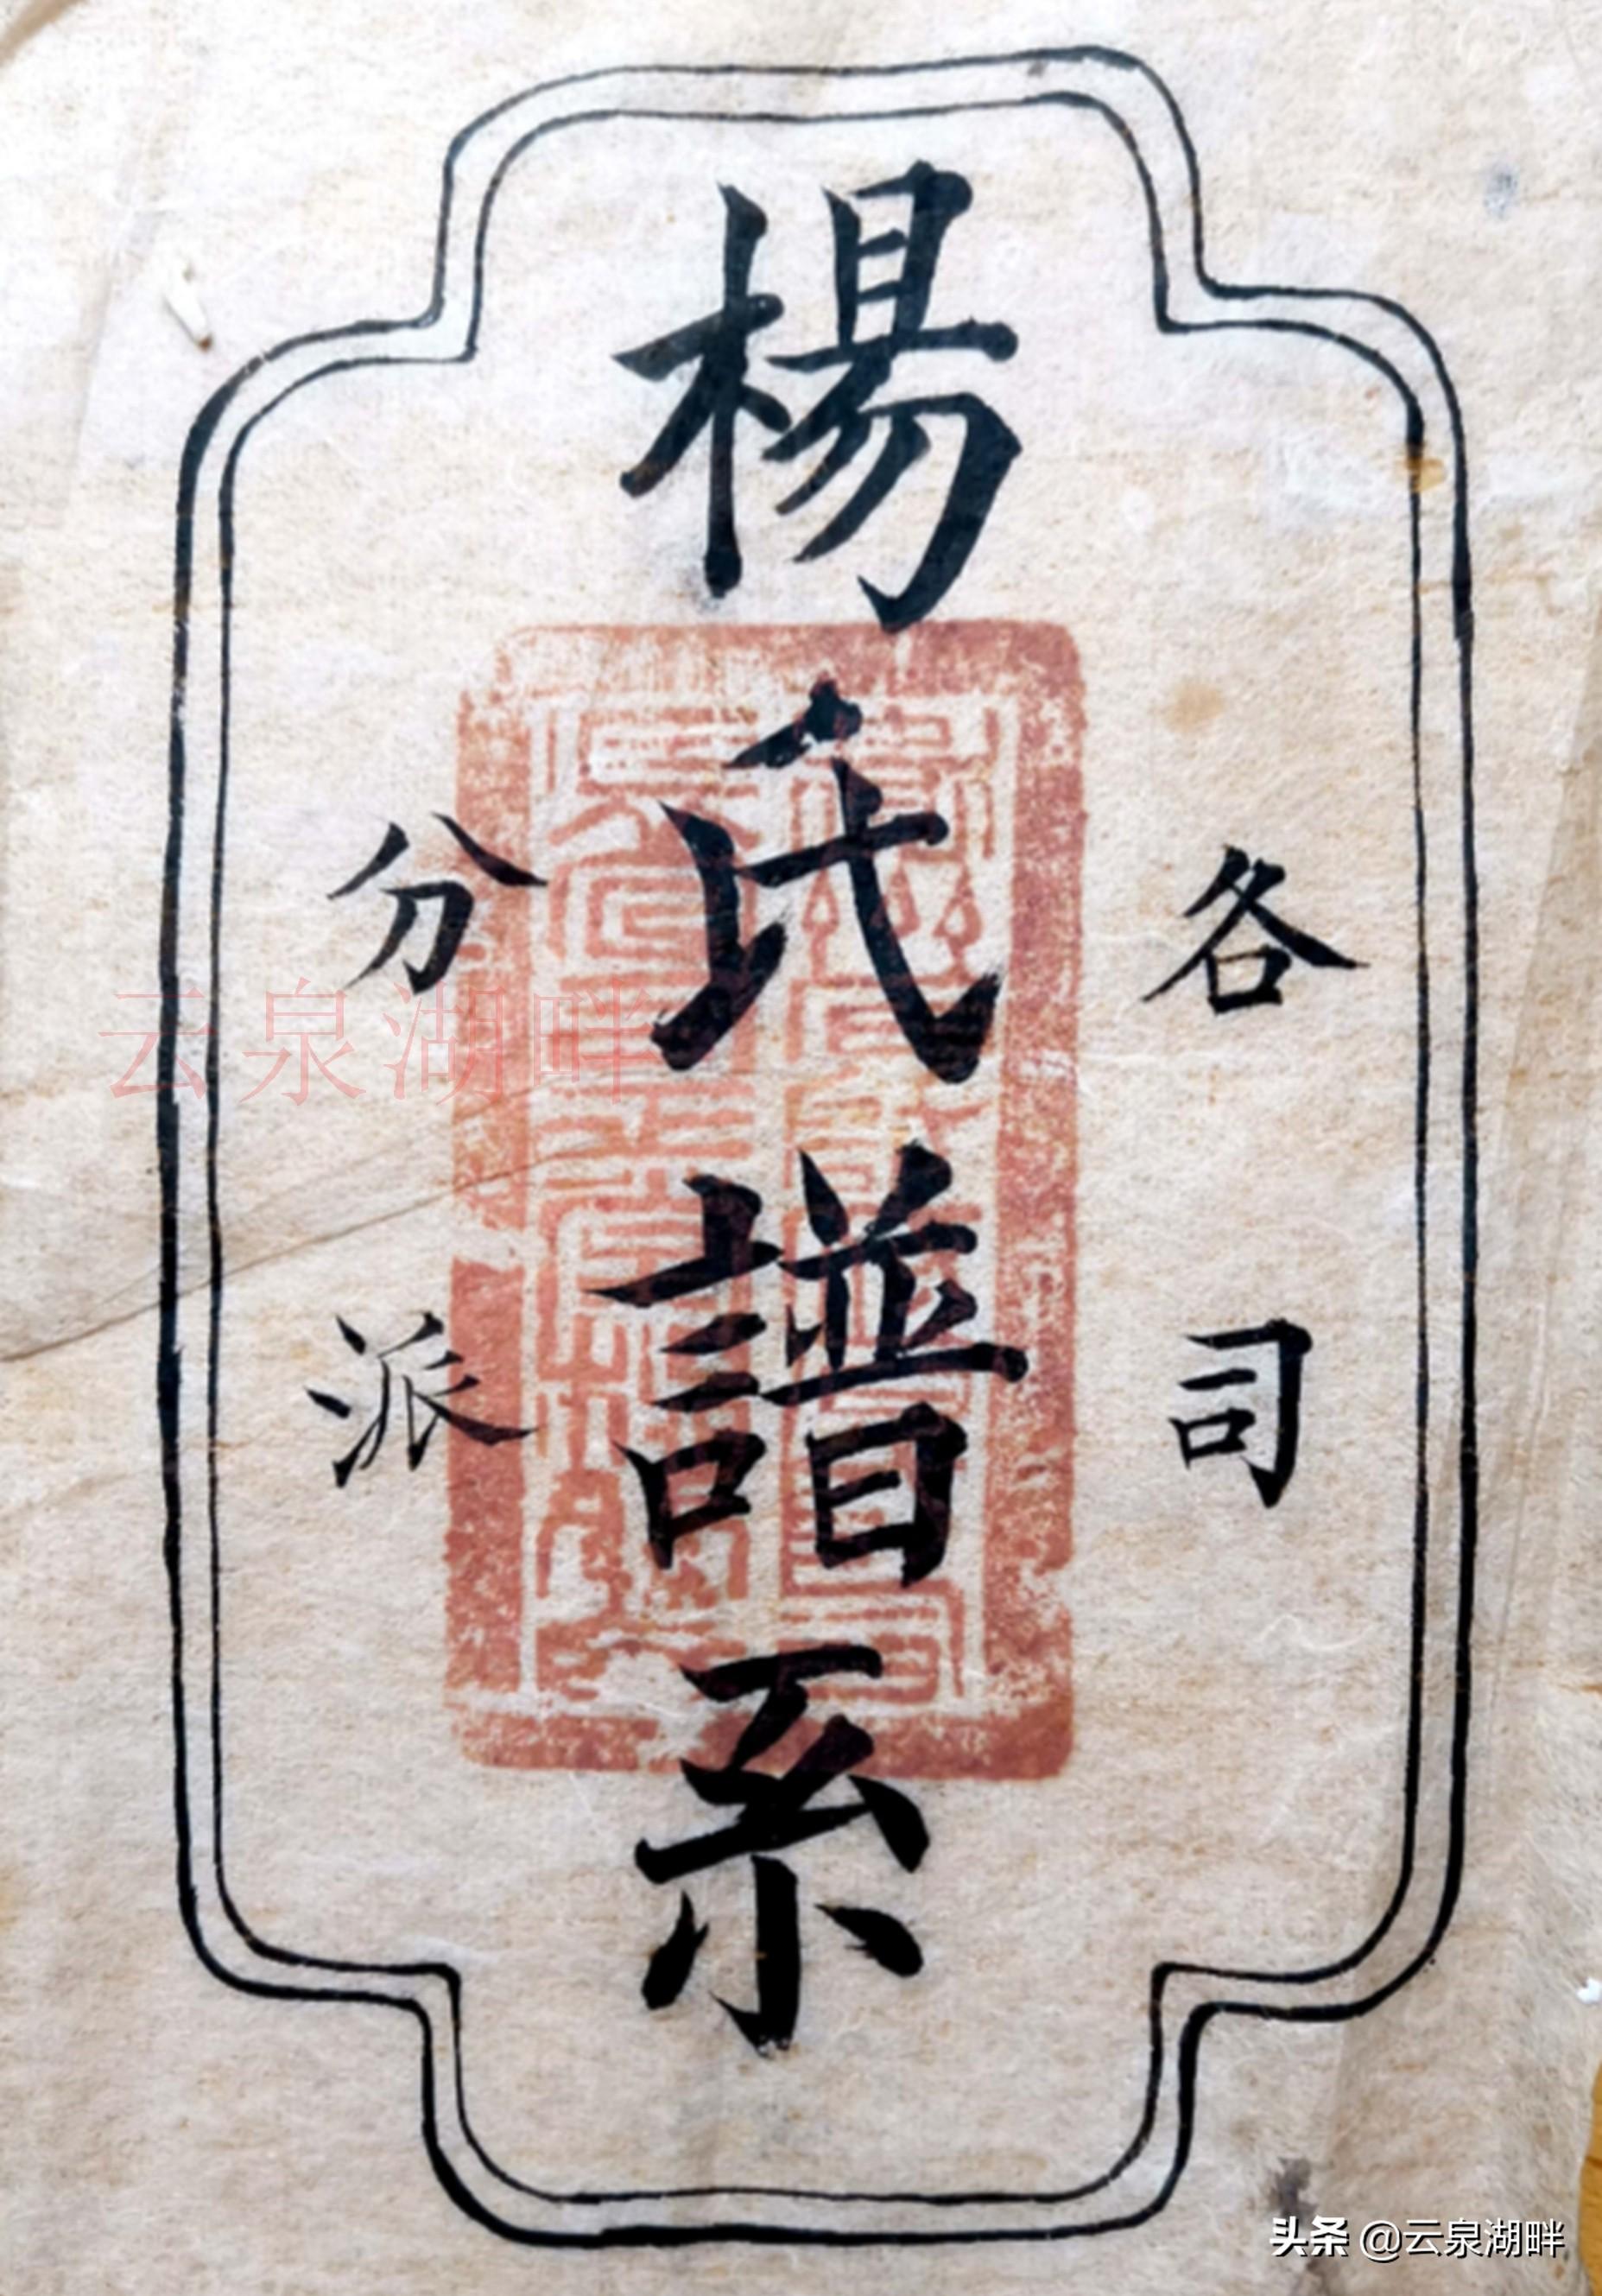 各司
楊氏譜系
分派
云泉湖畔
头条 @云泉湖畔